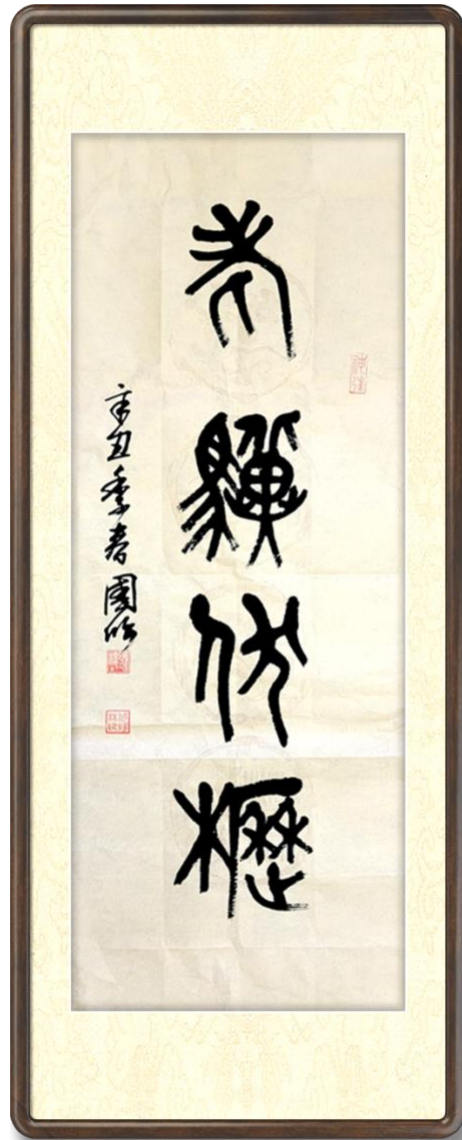 老驥伏櫪
辛丑季春國